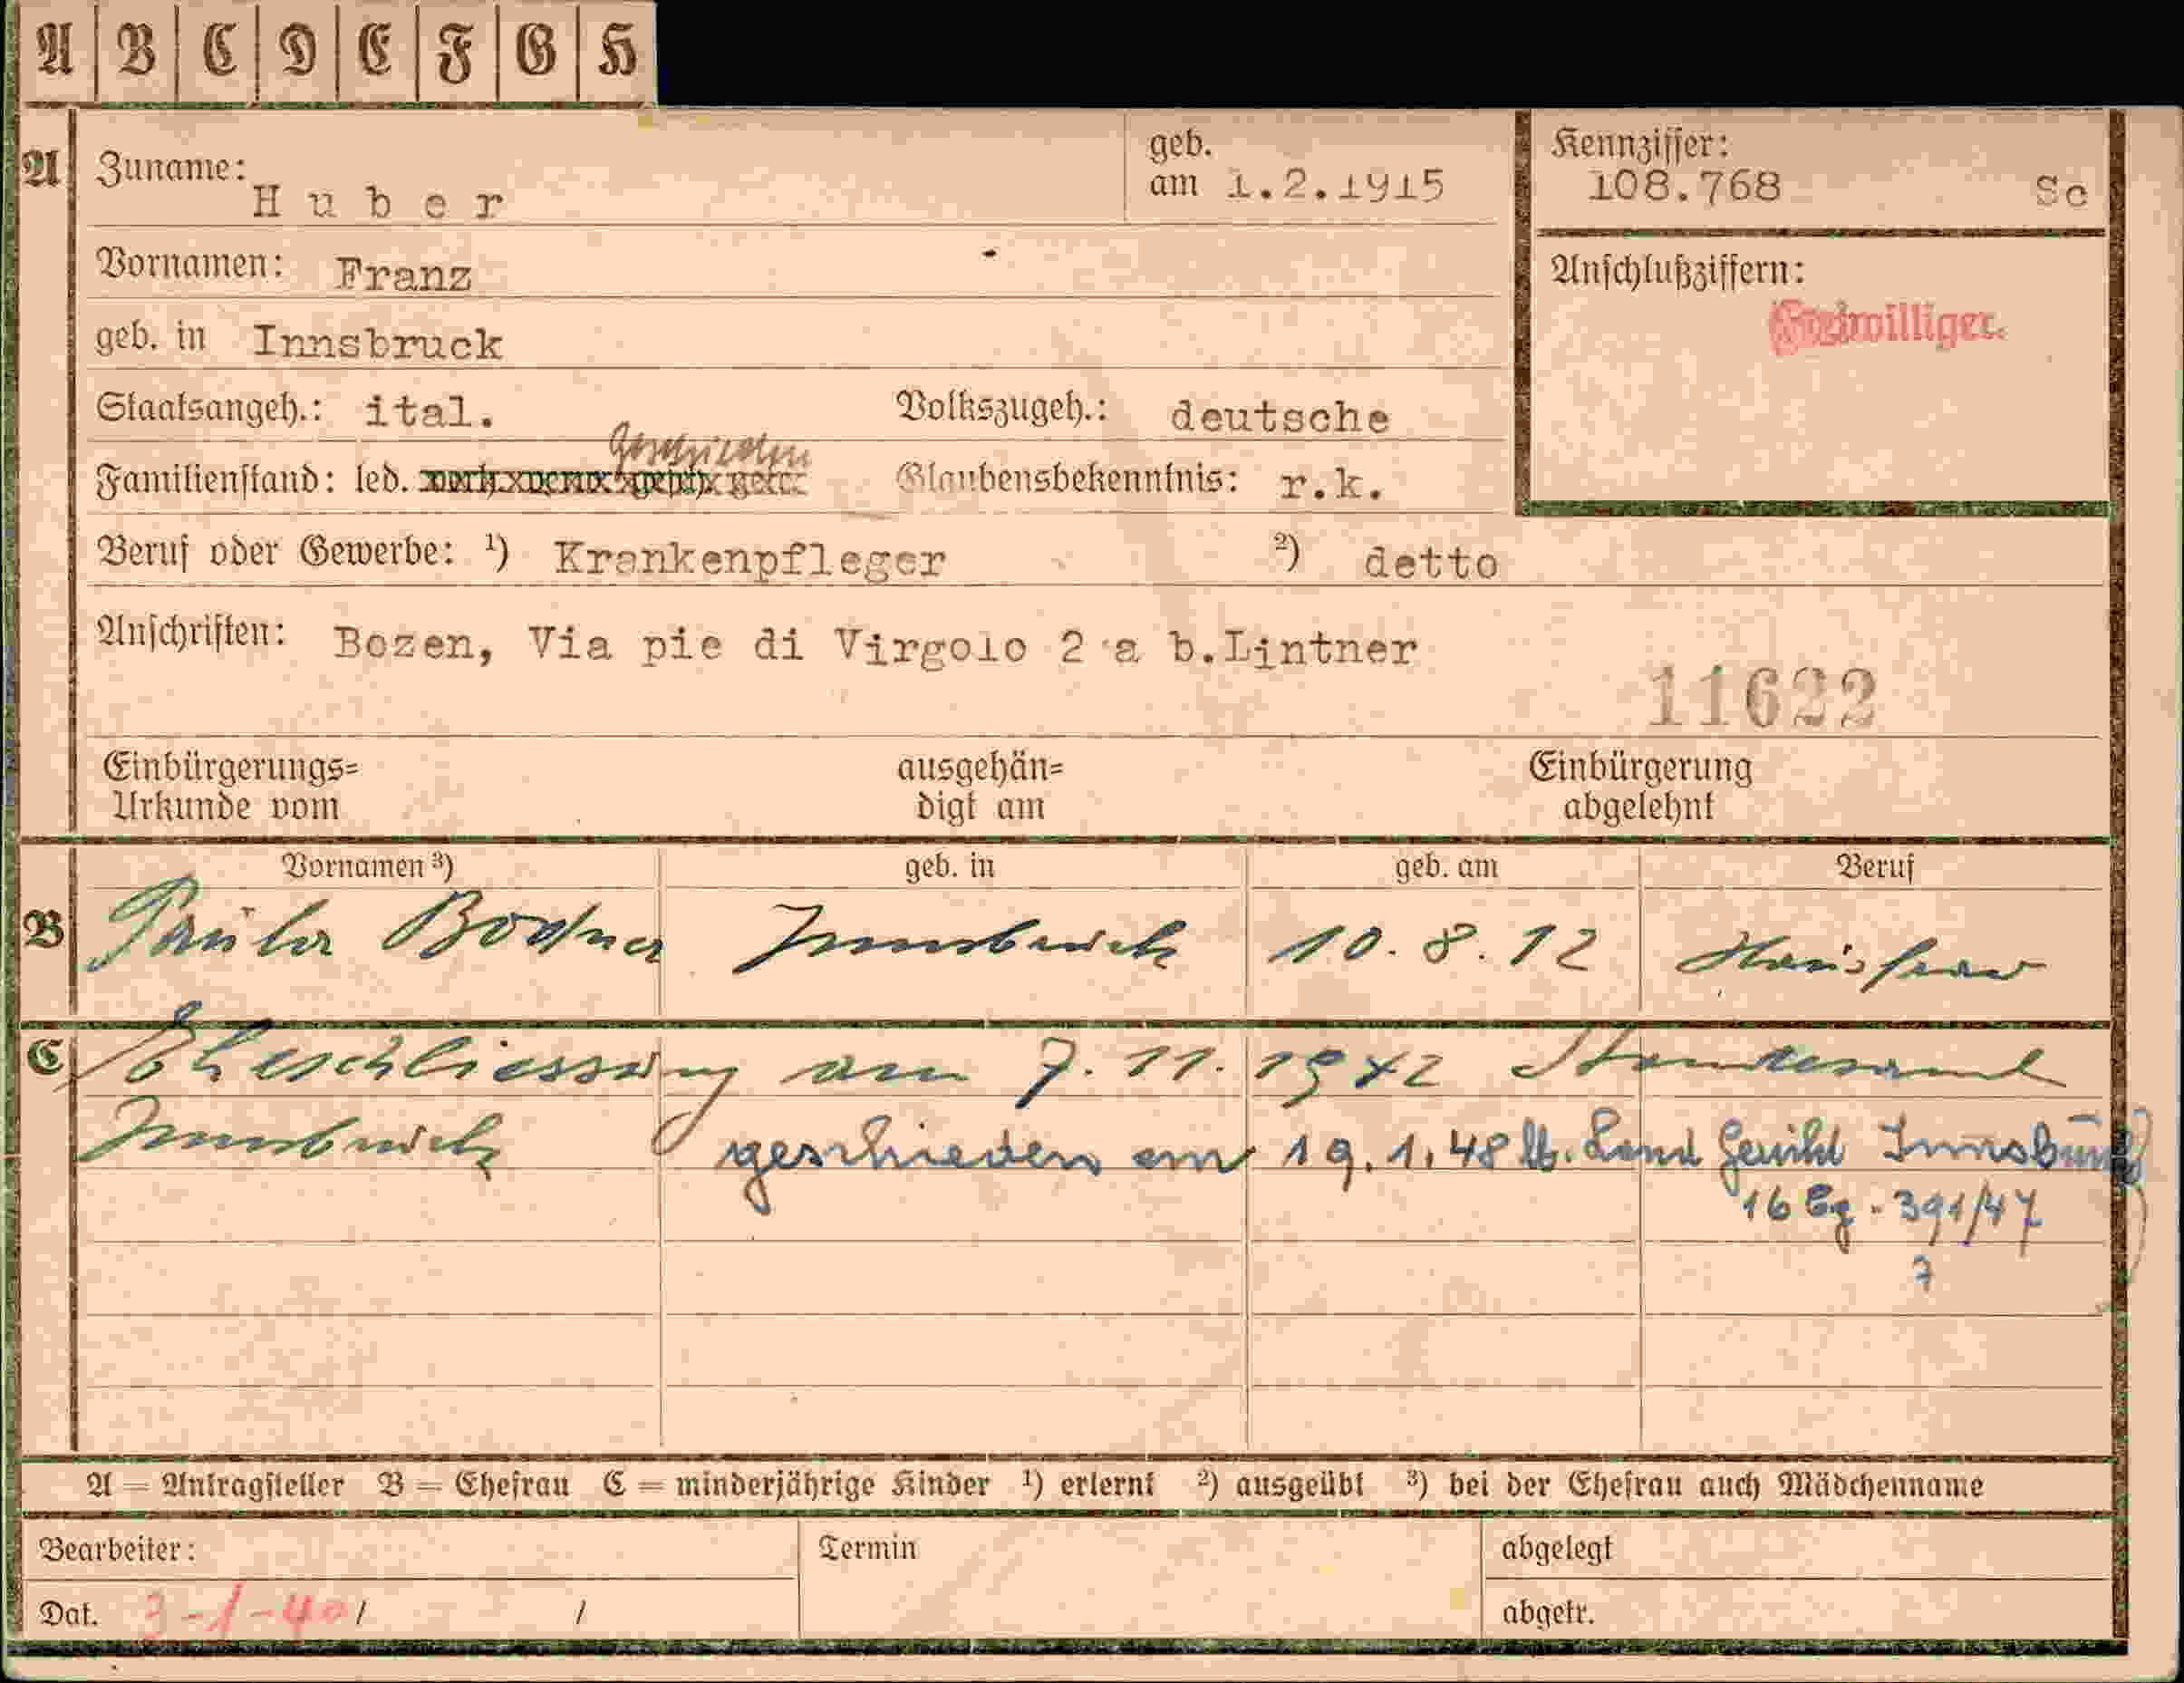 A B C D E F G H
A Zuname: Huber geb. am 1.2.1915 Kennziffer: 108.768 Sc
Vornamen: Franz Anschlußziffern:
Freiwilliger.
geb. in Innsbruck
Staatsangeh.: ital. Volkszugeh.: deutsche
Geschieden
Familienstand: led. Glaubensbekenntnis: r.k.
Beruf oder Gewerbe: ¹) Krankenpfleger ²) detto
Anschriften: Bozen, Via pie di Virgolo 2 a b.Lintner
11622
Einbürgerungs= ausgehän= Einbürgerung
Urkunde vom digt am abgelehnt
Vornamen ³) geb. in geb. am Beruf
B Paula Innsbruck 10.8.12 Hausfrau
C Eheschliessung am 7.11.1942 Standesamt
Innsbruck geschieden am 19.1.48 lt. Land Gericht Innsbruck
16 Cg. 391/47
7
A = Antragsteller B = Ehefrau C = minderjährige Kinder ¹) erlernt ²) ausgeübt ³) bei der Ehefrau auch Mädchenname
Bearbeiter: Termin abgelegt
Dat. 3-1-40 / / abgetr.